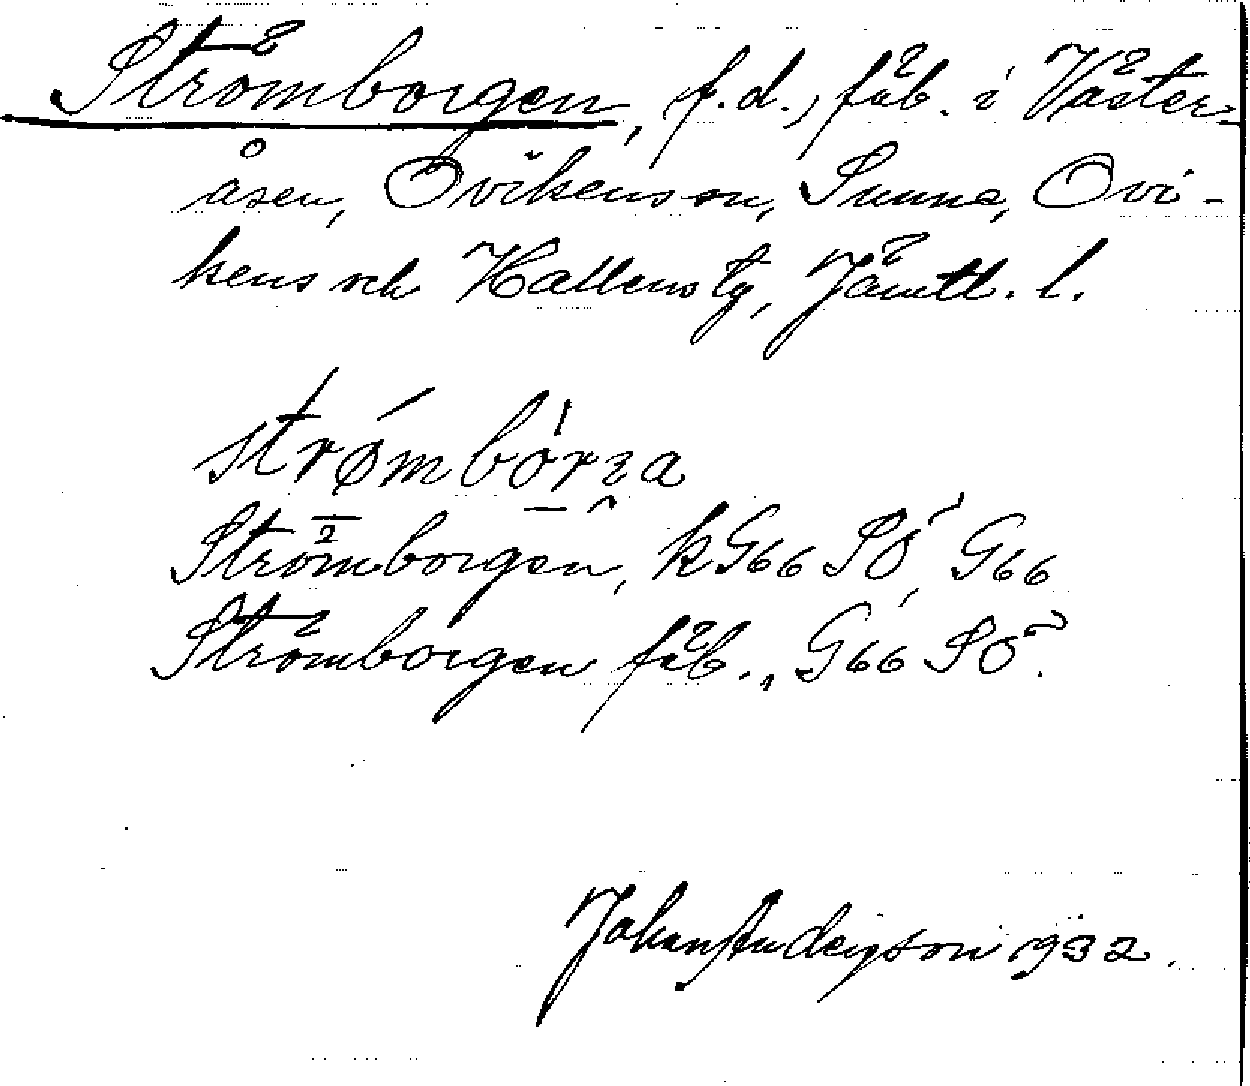 Strömborgen, f.d., fäb. i Väster-
åsen, Ovikens sn, Sunne, Ovi-
kens och Hallens tg, Jämtl. l.
strømbòrʒa
Strömborgen, kG66 SÖ, G66
Strömborgen fäb., G66 SÖ.
Johan Anderson 1932.